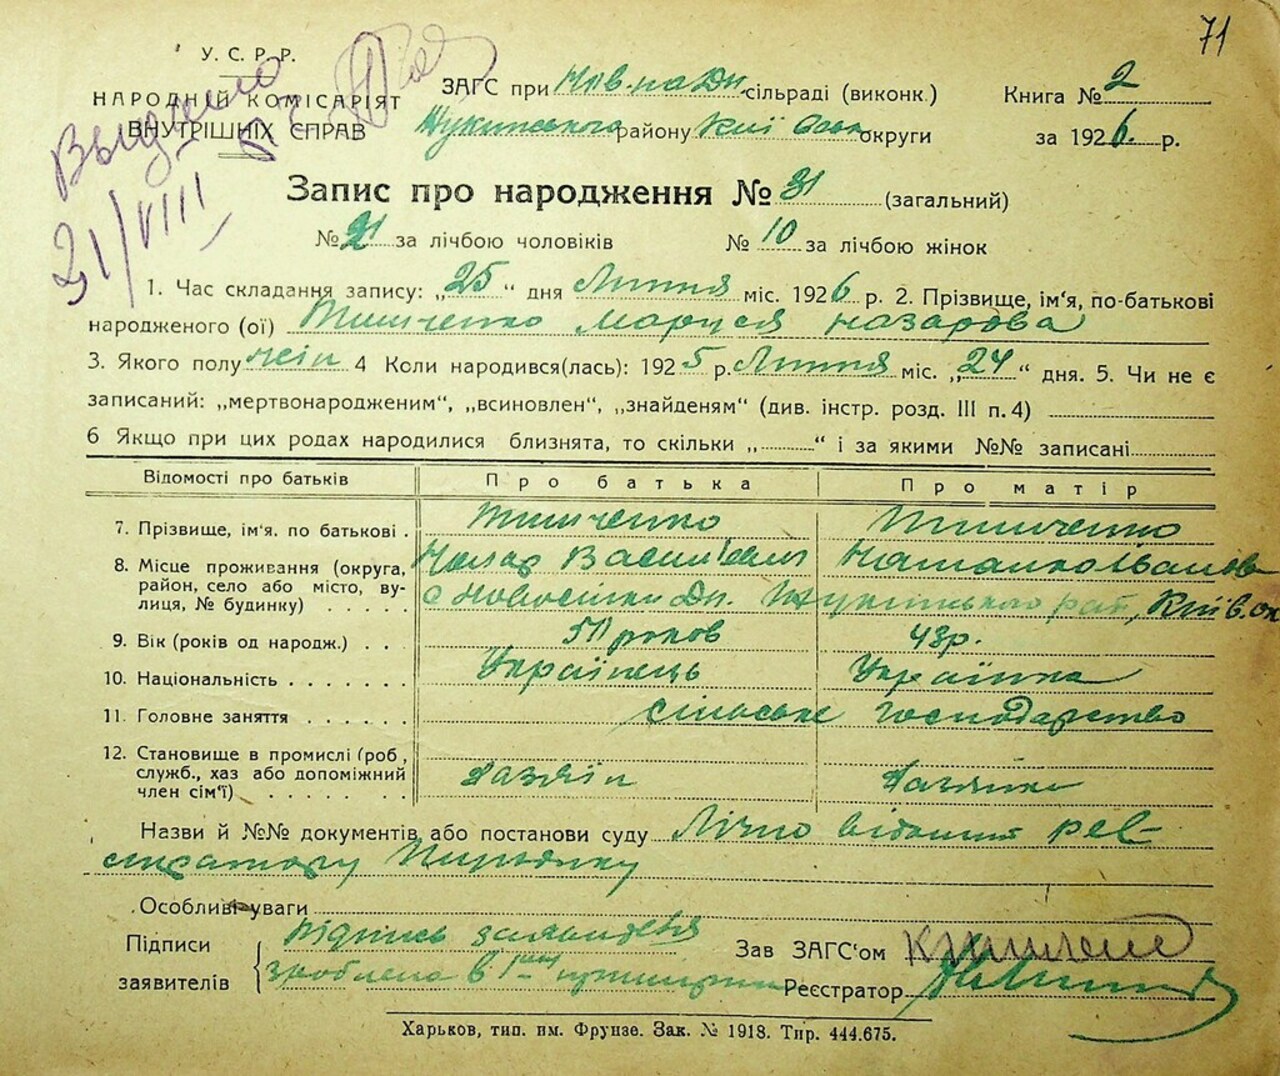 71
У. С. Р. Р.
НАРОДНІЙ КОМІСАРІЯТ
ВНУТРІШНІХ СПРАВ
21/VIII
ЗАГС при Нов. на Дн. сільраді (виконк.)
району Київськ округи
Книга № 2
за 1926. р.
Запис про народження № 31 (загальний)
№ 21 за лічбою чоловіків № 10 за лічбою жінок
1. Час складання запису: „25" дня Липня міс. 1926 р. 2. Прізвище, ім'я, по-батькові
народженого (ої) Тимченко Маруся Назарова
3. Якого полу жін 4 Коли народився(лась): 1925 р. Липня міс. „24" дня. 5. Чи не є
записаний: „мертвонародженим", „всиновлен", „знайденям" (див. інстр. розд. III п. 4)
6 Якщо при цих родах народилися близнята, то скільки „ " і за якими №№ записані
Відомості про батьків Про батька Про матір
7. Прізвище, ім'я. по батькові . Тимченко Тимченко
Назар Васильович
8. Місце проживання (округа,
район, село або місто, ву-
лиця, № будинку) . . . . . с Новосілки Дн. район, Київ. ок
9. Вік (років од народж.) . . 51 років 43р.
10. Національність . . . . . . . Українець Українка
11. Головне заняття . . . . . . сільське господарство
12. Становище в промислі (роб,
служб., хаз або допоміжний
член сім'ї) . . . . . . . Хазяїн Хазяйка
Назви й №№ документів або постанови суду Лічно відомий реє-
стратору
Особливі уваги
Підписи
заявителів
підпись заявителя
зроблена в 1му
Зав ЗАГС'ом
Реєстратор
Харьков, тип. им. Фрунзе. Зак. № 1918. Тир. 444.675.